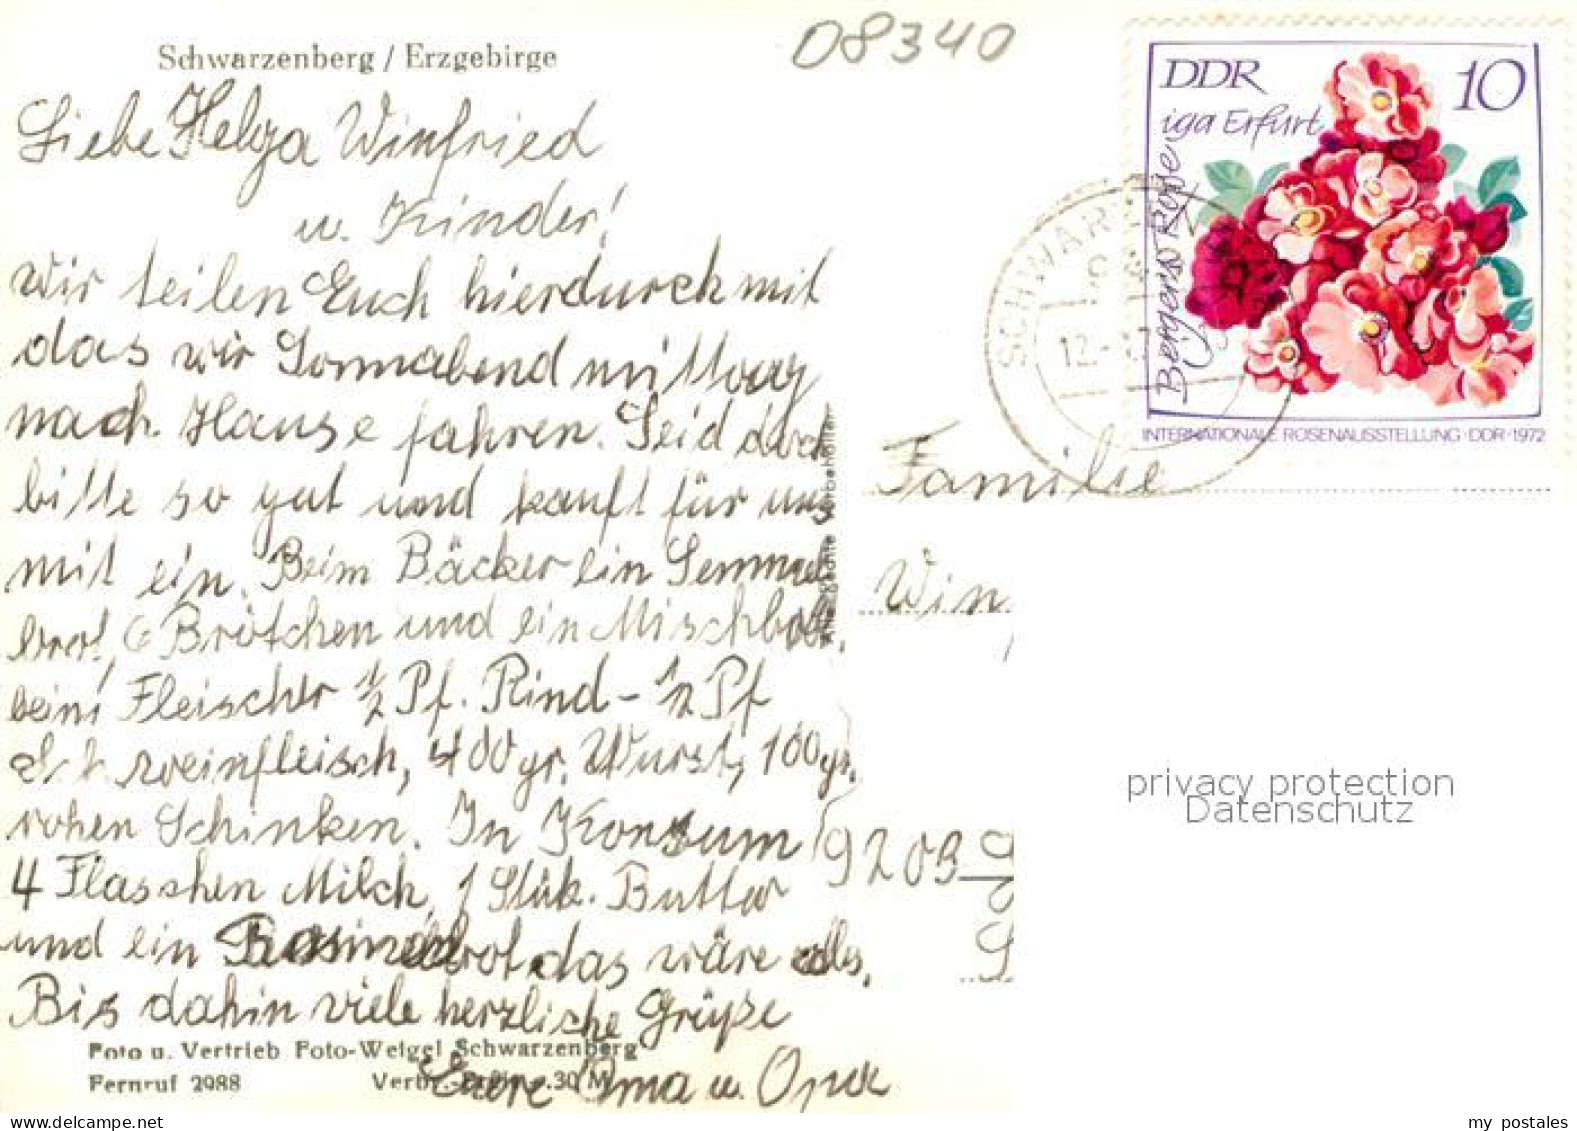 08340
Schwarzenberg / Erzgebirge
Liebe Helga Winfried
u. Kinder!
wir teilen Euch hierdurch mit
das wir Sonnabend mittag
nach Hause fahren. Seid doch
bitte so gut und kauft für uns
mit ein. Beim Bäcker ein Semmel
brot, 6 Brötchen und ein Mischbrot,
beim Fleischer 1/2 Pf. Rind- 1/2 Pf
Schweinfleisch, 400 gr. Wurst, 100 gr.
rohen Schinken. In Konsum
4 Flaschen Milch, 1 Stük. Butter
und ein Rosinenbrot, das wäre alles.
Bis dahin viele herzliche Grüße
Eure Oma u. Opa
Foto u. Vertrieb Foto-Weigel Schwarzenberg
Fernruf 2988
DDR 10
iga Erfurt
Bergers Rose
INTERNATIONALE ROSENAUSSTELLUNG · DDR · 1972
SCHWAR
12.
Familie
Win
9203
privacy protection
Datenschutz
my postales